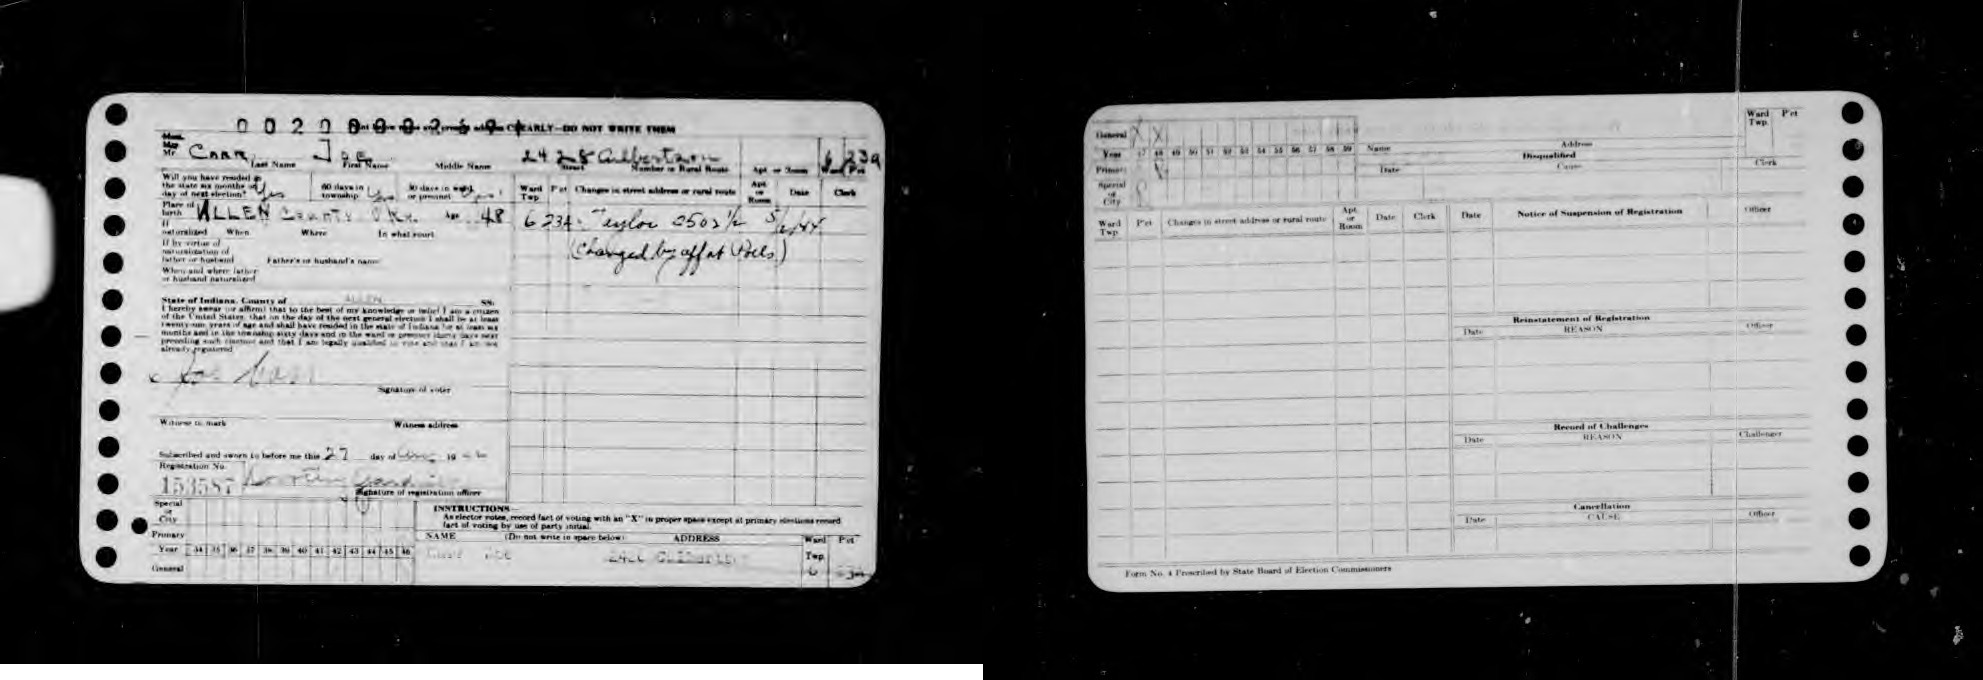 CLEARLY—DO NOT WRITE THEM
Mr. Carr Joe 2428 Culbertson 6 23a
Last Name First Name Middle Name Street Number or Rural Route Apt. or Room Ward Pct
Will you have resided in
the state six months on
day of next election? Yes
60 days in
township
30 days in ward
or precinct
Ward Twp Pct Changes in street address or rural route Apt. or Room Date Clerk
Place of
birth ALLEN County Ky. Age 48
6 23A Taylor 2502 1/2
(Changed by aff at Polls.)
If
naturalized When Where In what court
If by virtue of
naturalization of
father or husband Father's or husband's name
When and where father
or husband naturalized
State of Indiana, County of ALLEN SS:
I hereby swear (or affirm) that to the best of my knowledge or belief I am a citizen
of the United States, that on the day of the next general election I shall be at least
twenty-one years of age and shall have resided in the state of Indiana for at least six
months and in the township sixty days and in the ward or precinct thirty days next
preceding such election and that I am legally qualified to vote and that I am not
already registered
x Joe Carr
Signature of voter
Witness to mark Witness address
Subscribed and sworn to before me this 27 day of 19
Registration No.
153587
Signature of registration officer
Special
or
City
Primary
Year 34 35 36 37 38 39 40 41 42 43 44 45 46
General
INSTRUCTIONS—
As elector votes, record fact of voting with an "X" in proper space except at primary elections record
fact of voting by use of party initial.
NAME (Do not write in space below) ADDRESS Ward Pct
Twp.
General X X
Year 47 48 49 50 51 52 53 54 55 56 57 58 59
Primary
Special
or
City
Name Address
Disqualified
Date Cause
Ward
Twp. Pct
Clerk
Ward
Twp. Pct Changes in street address or rural route Apt. or Room Date Clerk
Date Notice of Suspension of Registration Officer
Reinstatement of Registration
Date REASON Officer
Record of Challenges
Date REASON Challenger
Cancellation
Date CAUSE Officer
Form No. 4 Prescribed by State Board of Election Commissioners